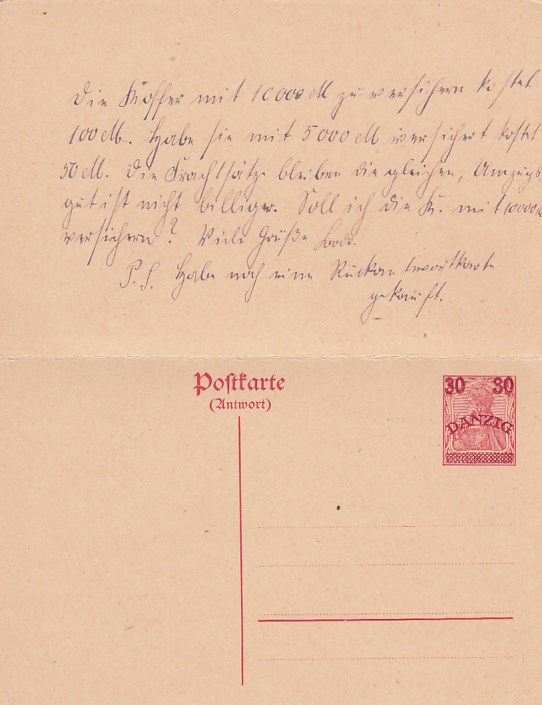 Die Koffer mit 10000 M zu versichern kostet
100 M. Habe sie mit 5000 M versichert kostet
50 M. Die Frachtsätze bleiben die gleichen, Umzugs
gut ist nicht billiger. Soll ich die K. mit 10000 M
versichern? Viele Grüße
P.S. Habe noch eine Rückantwortkarte
gekauft.
Postkarte
(Antwort)
30 30
DANZIG